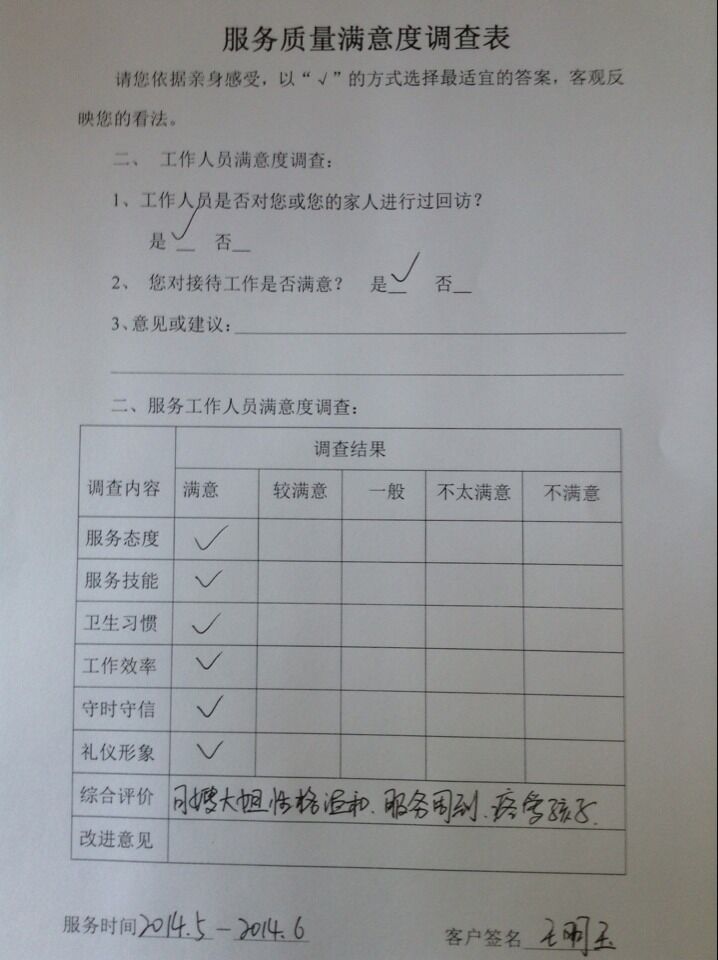 服务质量满意度调查表
请您依据亲身感受，以“√”的方式选择最适宜的答案，客观反
映您的看法。
二、 工作人员满意度调查：
1、工作人员是否对您或您的家人进行过回访？
是√ 否__
2、 您对接待工作是否满意？ 是√ 否__
3、意见或建议：
二、服务工作人员满意度调查：
调查内容 调查结果
满意 较满意 一般 不太满意 不满意
服务态度 √
服务技能 √
卫生习惯 √
工作效率 √
守时守信 √
礼仪形象 √
综合评价 大姐性格温和、服务周到、疼爱孩子.
改进意见
服务时间 2014.5－2014.6 客户签名 王明玉